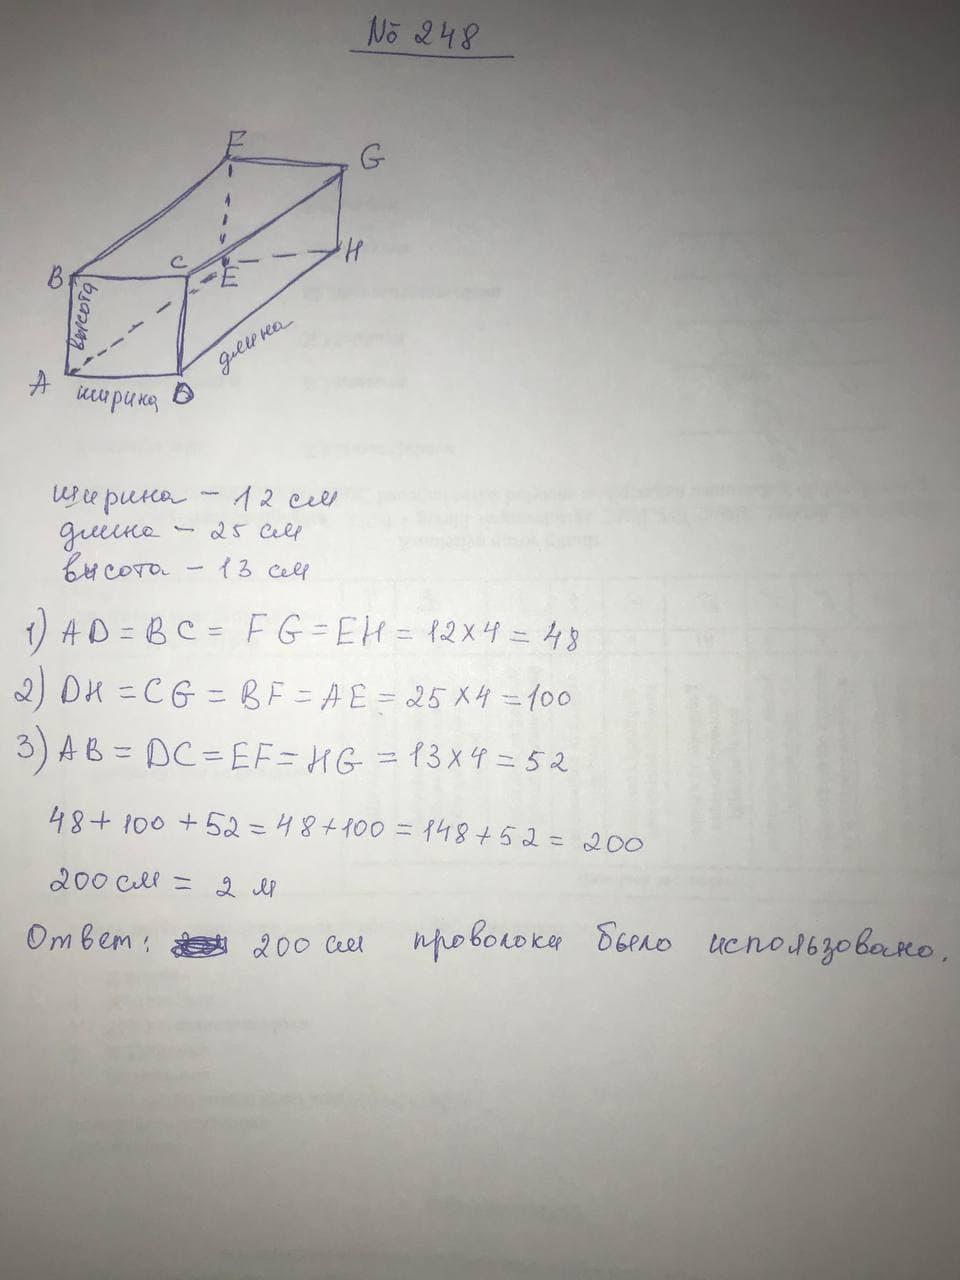 № 248
F
G
B
C
E
H
высота
длина
A
ширина
D
ширина – 12 см
длина – 25 см
высота – 13 см
1) AD = BC = FG = EH = 12 × 4 = 48
2) DH = CG = BF = AE = 25 × 4 = 100
3) AB = DC = EF = HG = 13 × 4 = 52
48 + 100 + 52 = 48 + 100 = 148 + 52 = 200
200 см = 2 м
Ответ: 200 см проволоки было использовано.